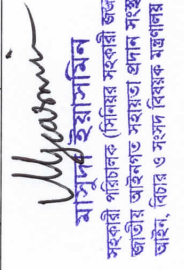 মাসুদা ইয়াসমিন
সহকারী পরিচালক (সিনিয়র সহকারী জজ
জাতীয় আইনগত সহায়তা প্রদান সংস্থ
আইন, বিচার ও সংসদ বিষয়ক মন্ত্রণালয়